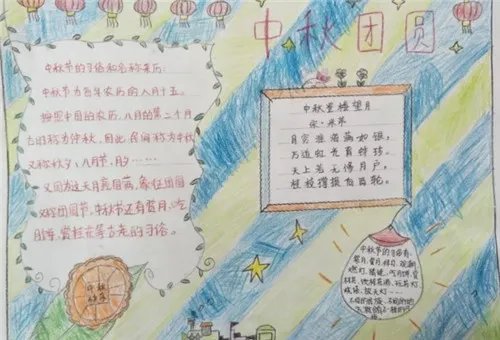 中秋团圆
中秋节的习俗和名称来历:
中秋节为每年农历的八月十五。
按照中国的农历,八月的第二个月
古时称为仲秋,因此,民间称为中秋
又称秋夕,八月节,月夕……
又因为这天月亮圆满,象征团圆
又称团圆节。中秋节还有赏月、吃
月饼、赏桂花等古老的习俗。
中秋
中秋登楼望月
宋·米芾
月穷淮海两如银,
万道虹光育蚌珍。
天上若无修月户,
桂枝撑损向西轮。
中秋节的习俗有:
祭月、赏月、拜月、观潮
燃灯、猜谜、吃月饼、赏
桂花、饮桂花酒、玩花灯